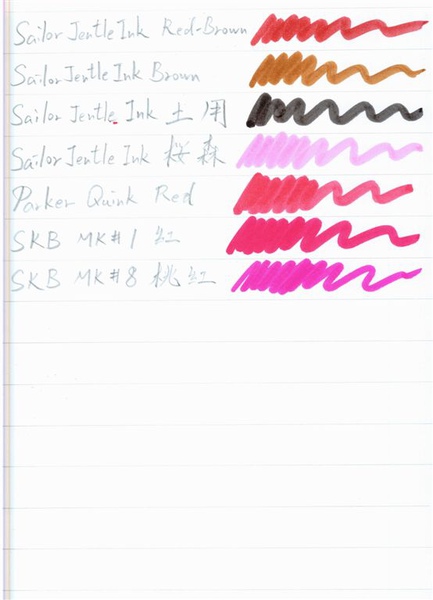 Sailor Jentle Ink Red-Brown
Sailor Jentle Ink Brown
Sailor Jentle Ink 土用
Sailor Jentle Ink 桜森
Parker Quink Red
SKB MK#1 红
SKB MK#8 桃红